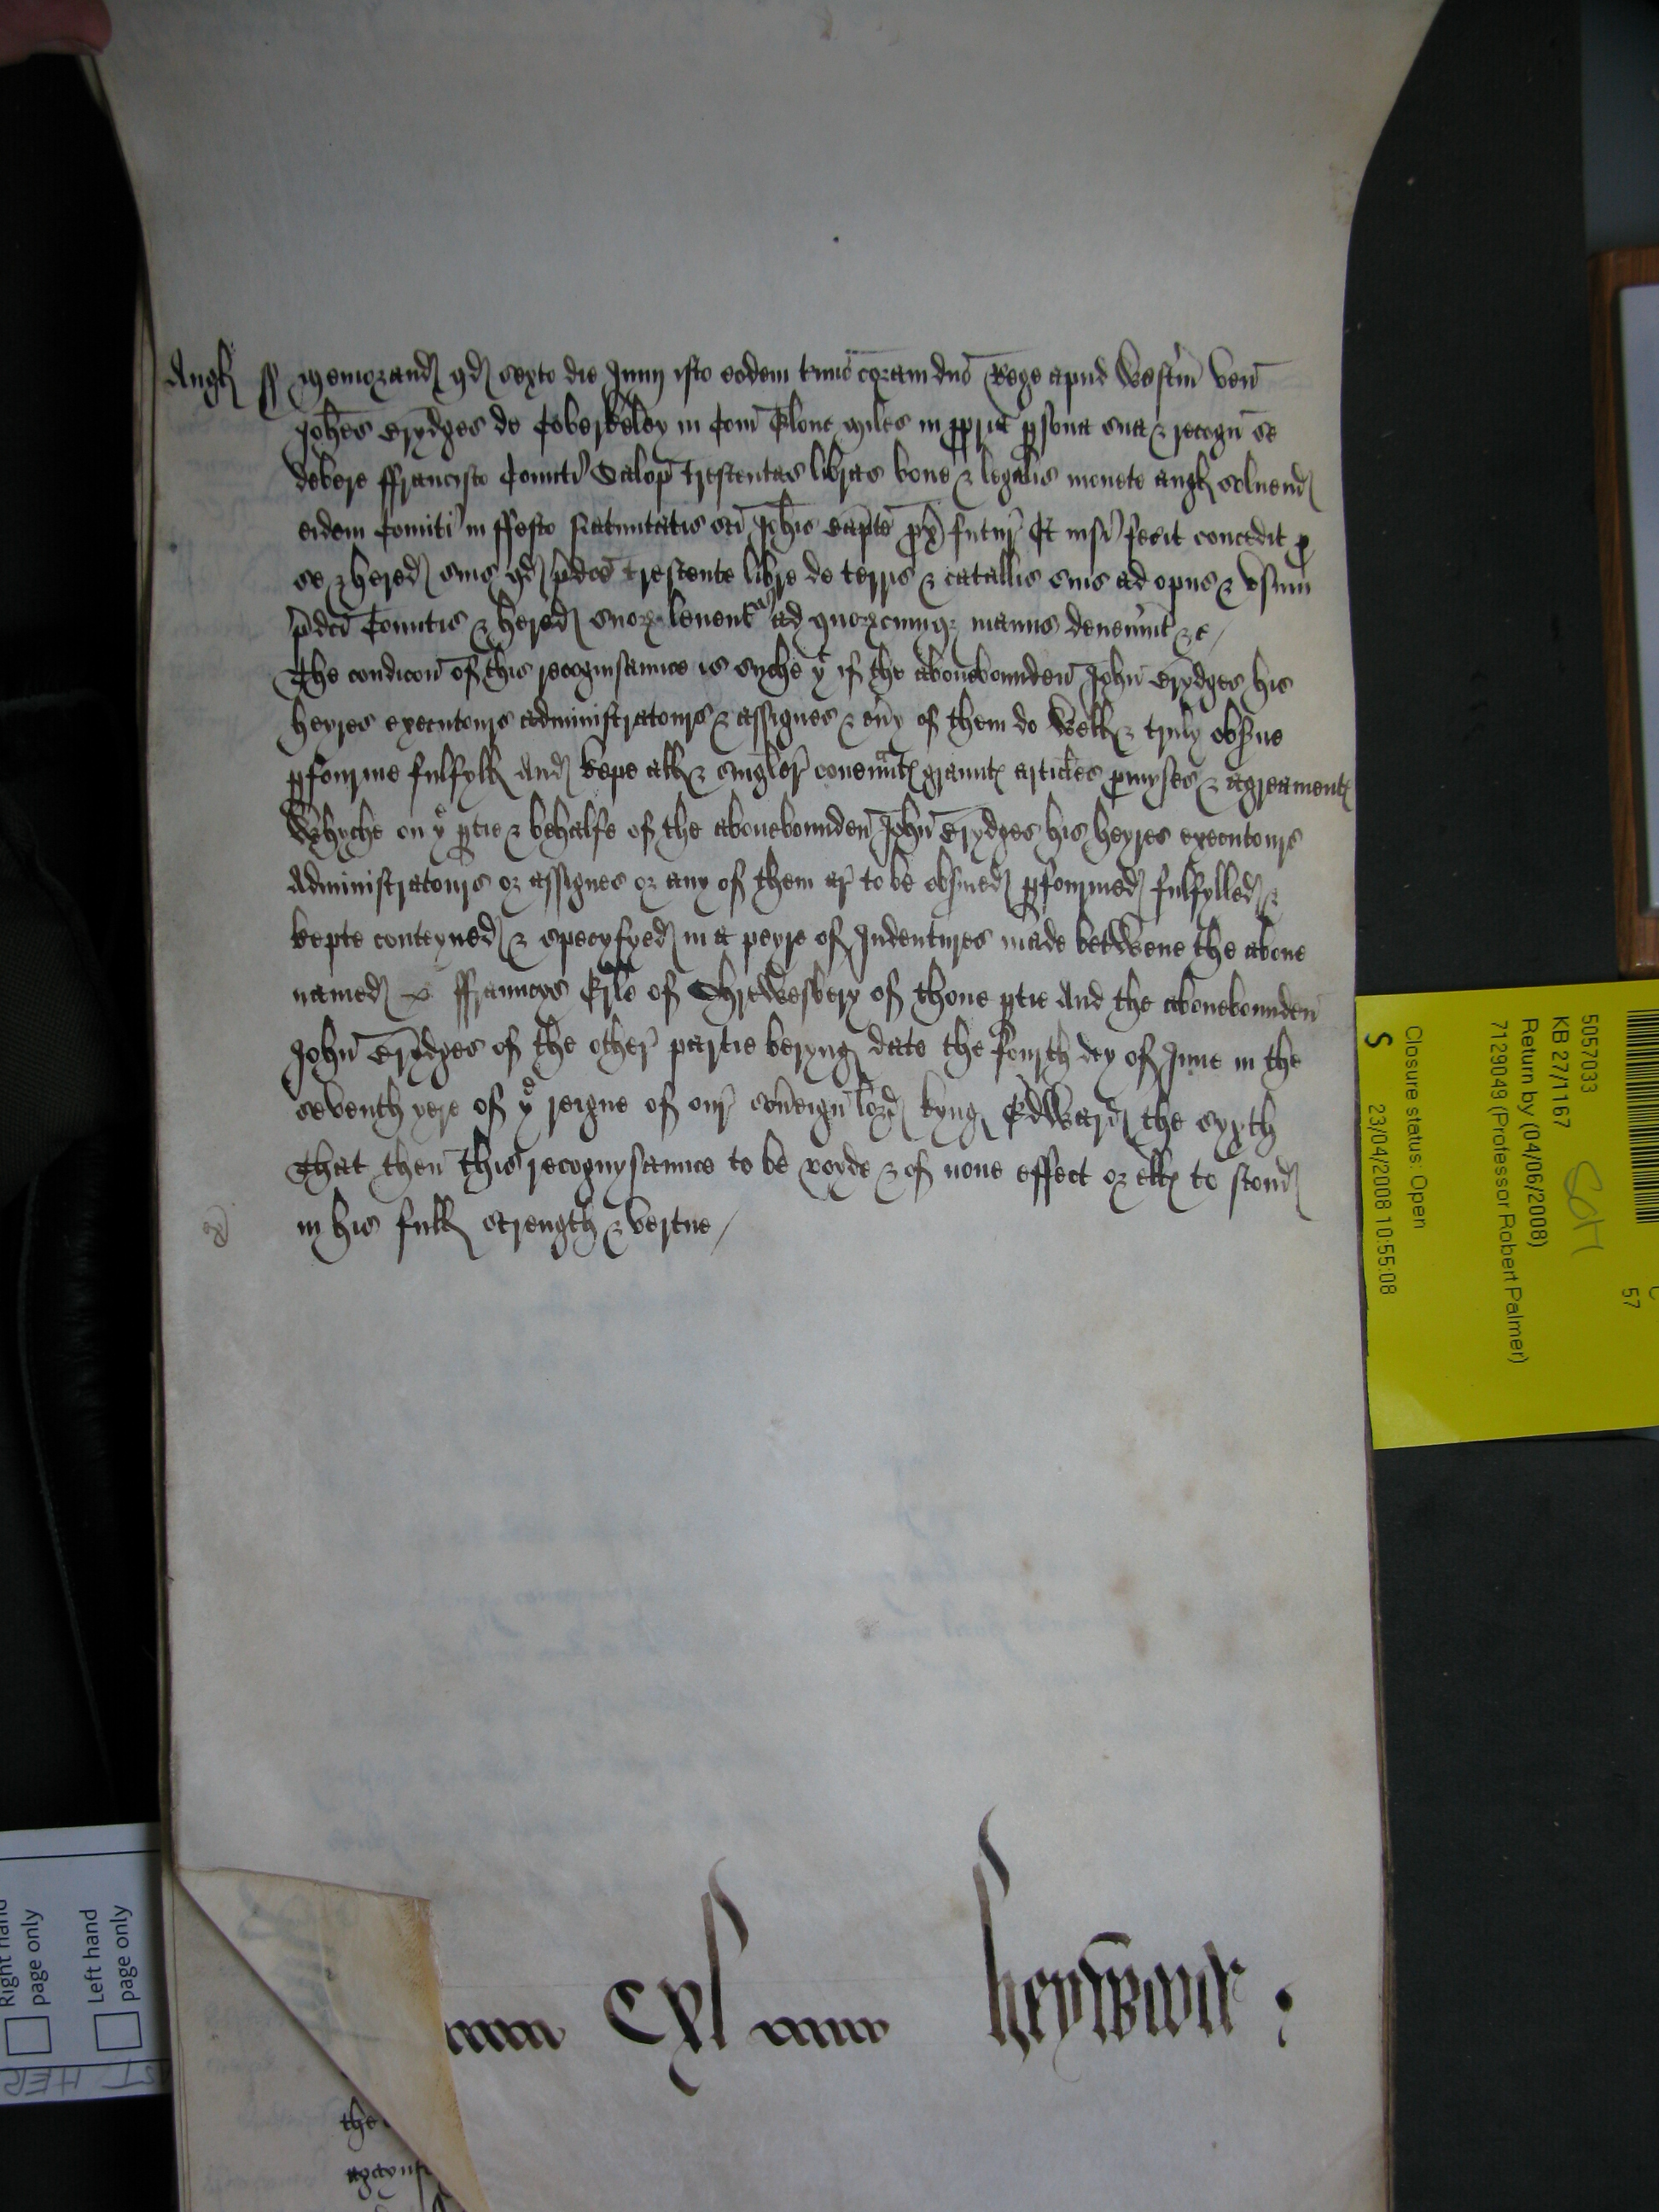 Angł ss Memorand qd sexto die Junij isto eodem tmio coram dno Rege apud Westm ven
Johes Brydges de Coberkeley in Com Glouc miles in ppria psona sua & recogn se
debere ffrancisco Comiti Salop trescentas libras bone & legalis monete angł soluend
eidem Comiti in ffesto Natiuitatis sci Johis Bapte px futur Et nisi fecit concedit p
se & hered suis qd pdce trescente libre de terris & catallis suis ad opus & vsum
pdci Comitis & hered suor leuent ad quorcumq manus deuenint &c /
The condicon of this recognisaunce is suche yt if the abouebounden John Brydges his
heyres executours administratours & assignes & eny of them do well & truly obsue
pfourme fulfyll And kepe all & singler couennt graunt articles pmyses & agreament
Whyche on ye ptie & behalfe of the abouebounden John Brydges his heyres executours
Administratours or assignes or any of them ar to be obsued pfourmed fulfylled &
kepte conteyned & specyfyed in a peyre of Indentures made betwene the aboue
named ffraunces Erle of Shrewesbery of thone ptie And the abouebounden
John Brydges of the other partie beryng date the fourth dey of June in the
seventh yere of ye reigne of our soueign lord kyng Edward the syxth
That then this recognysaunce to be voyde & of none effect or elles to stond
in his full strength & vertue /
CXl
heyward
the
agaynst
5057033
KB 27/1167
Return by (04/06/2008)
7129049 (Professor Robert Palmer)
Closure status: Open
S 23/04/2008 10:55:08
57
Right hand
page only
Left hand
page only